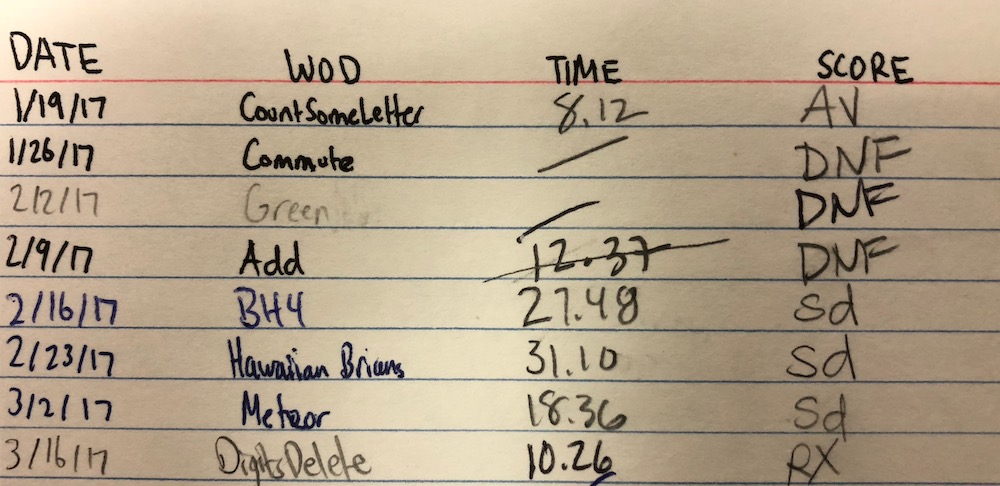 DATE WOD TIME SCORE
1/19/17 CountSomeLetter 8.12 AV
1/26/17 Commute / DNF
2/2/17 Green / DNF
2/9/17 Add 12.37 DNF
2/16/17 BH4 27.48 Sd
2/23/17 Hawaiian Brians 31.10 Sd
3/2/17 Meteor 18.36 Sd
3/16/17 DigitsDelete 10.26 RX